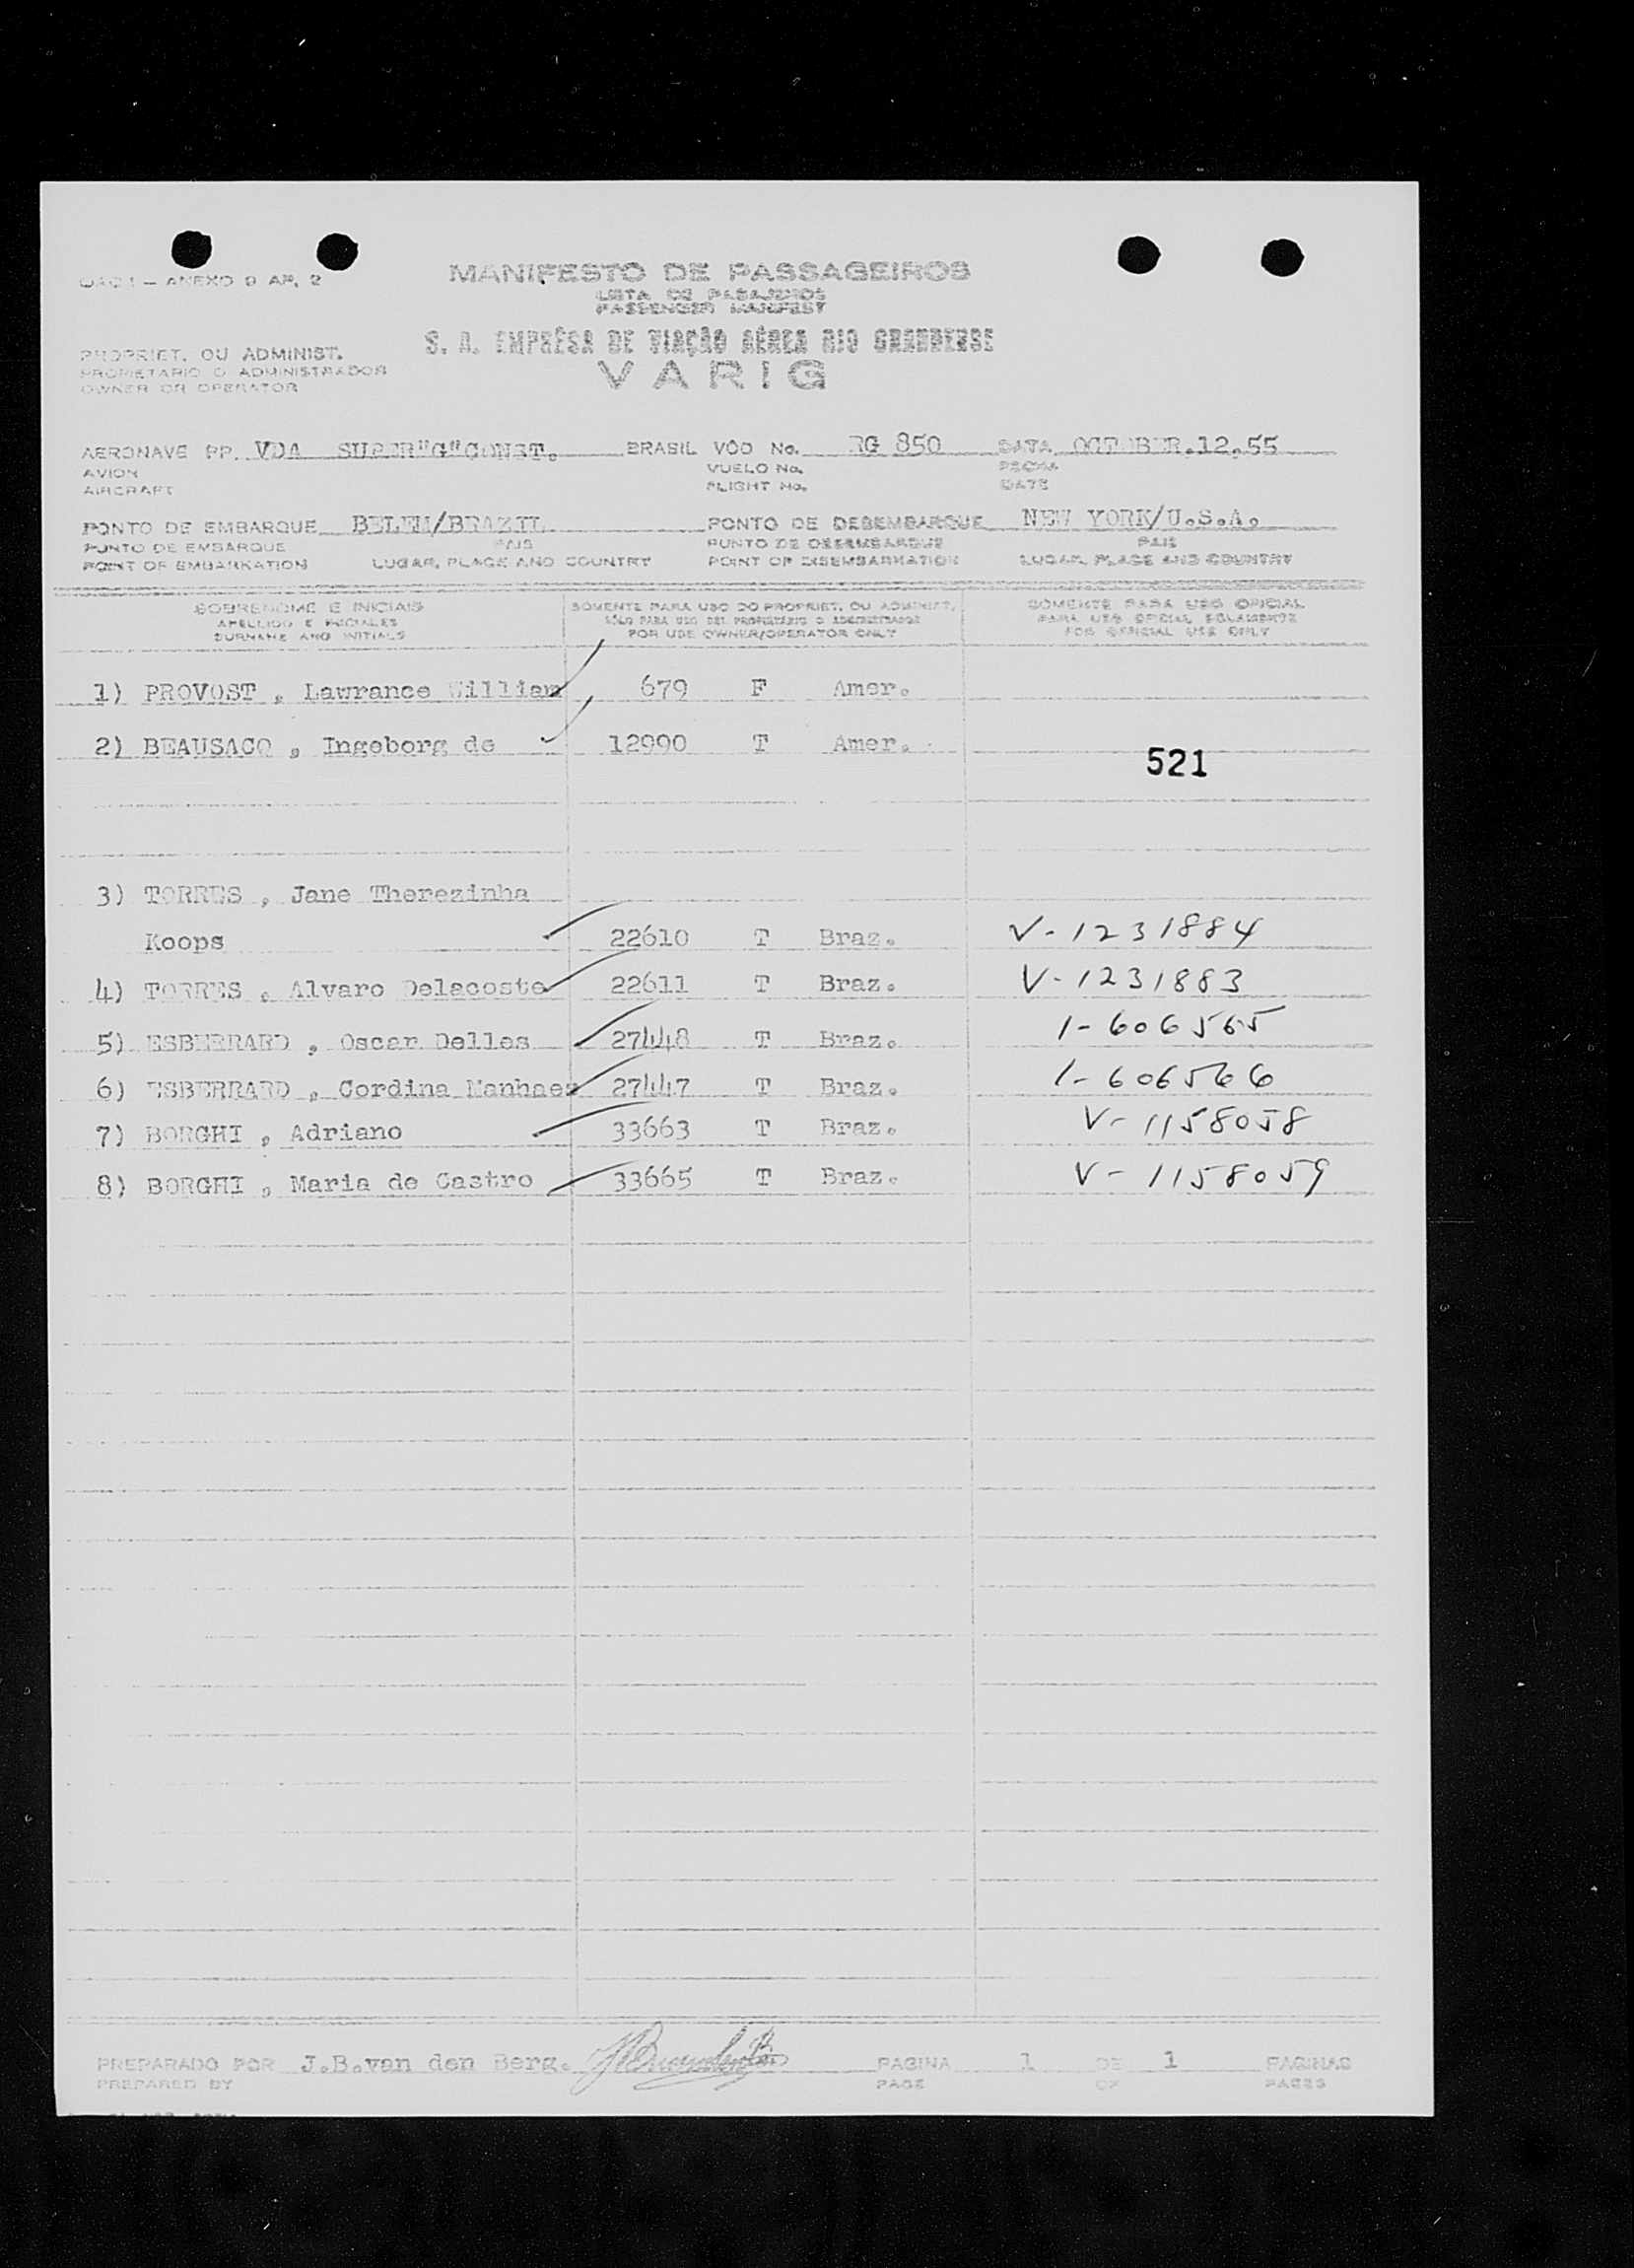 OACI — ANEXO 9 AP. 2
MANIFESTO DE PASSAGEIROS
LISTA DE PASAJEROS
PASSENGER MANIFEST
S. A. EMPRÊSA DE VIAÇÃO AÉREA RIO GRANDENSE
VARIG
PROPRIET. OU ADMINIST.
PROPIETARIO O ADMINISTRADOR
OWNER OR OPERATOR
AERONAVE PP. VDA SUPER"G"CONST. BRASIL VÔO No. RG 850 DATA OCTOBER.12.55
AVION VUELO No. FECHA
AIRCRAFT FLIGHT No. DATE
PONTO DE EMBARQUE BELEM/BRAZIL PONTO DE DESEMBARQUE NEW YORK/U.S.A.
PUNTO DE EMBARQUE PAIS PUNTO DE DESEMBARQUE PAIS
POINT OF EMBARKATION LUGAR, PLACE AND COUNTRY POINT OF DISEMBARKATION LUGAR, PLACE AND COUNTRY
SOBRENOME E INICIAIS SÒMENTE PARA USO DO PROPRIET. OU ADMINIST. SÒMENTE PARA USO OFICIAL
APELLIDO E INICIALES SÓLO PARA USO DEL PROPIETARIO O ADMINISTRADOR PARA USO OFICIAL SOLAMENTE
SURNAME AND INITIALS FOR USE OWNER/OPERATOR ONLY FOR OFFICIAL USE ONLY
1) PROVOST , Lawrance William 679 F Amer.
2) BEAUSACQ , Ingeborg de 12990 T Amer.
521
3) TORRES , Jane Therezinha
Koops 22610 T Braz. V-1231884
4) TORRES , Alvaro Delacoste 22611 T Braz. V-1231883
5) ESBERRARD , Oscar Delles 27448 T Braz. 1-606565
6) ESBERRARD , Cordina Manhaes 27447 T Braz. 1-606566
7) BORGHI , Adriano 33663 T Braz. V-1158058
8) BORGHI , Maria de Castro 33665 T Braz. V-1158059
PREPARADO POR J.B.van den Berg. PAGINA 1 DE 1 PAGINAS
PREPARED BY PAGE OF PAGES